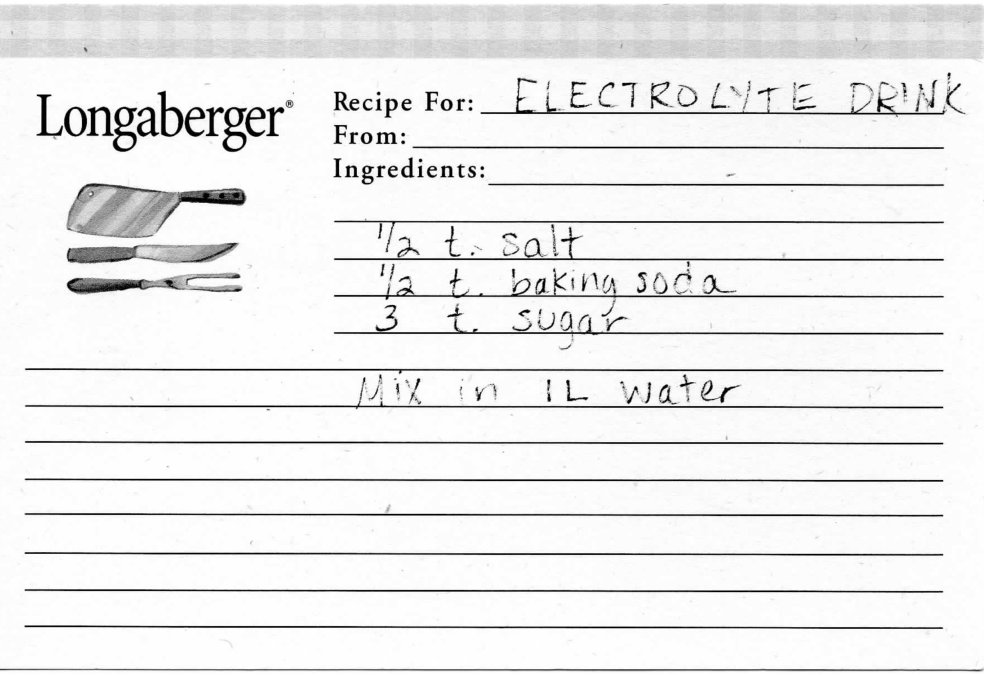 Longaberger®
Recipe For: ELECTROLYTE DRINK
From:
Ingredients:
1/2 t. salt
1/2 t. baking soda
3 t. sugar
Mix in 1L water